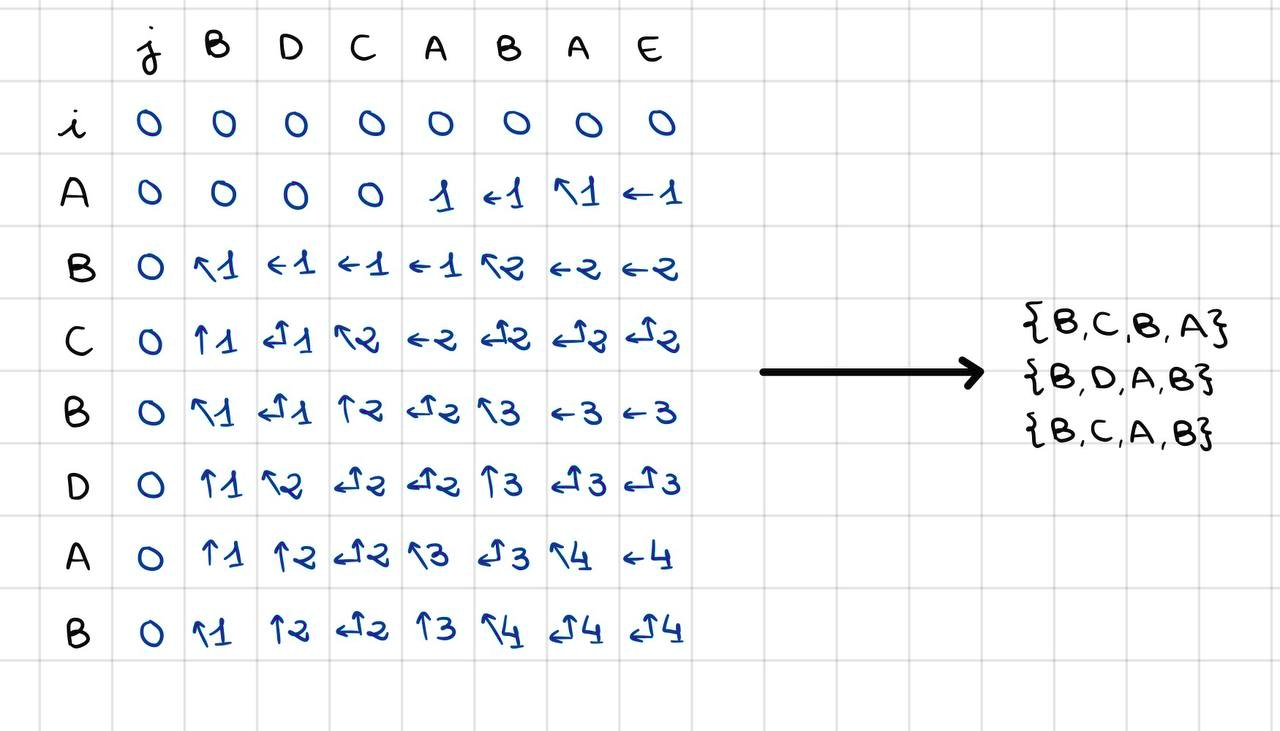 j B D C A B A E
i 0 0 0 0 0 0 0 0
A 0 0 0 0 1 ←1 ↖1 ←1
B 0 ↖1 ←1 ←1 ←1 ↖2 ←2 ←2
C 0 ↑1 ←↑1 ↖2 ←2 ←↑2 ←↑2 ←↑2
B 0 ↖1 ←↑1 ↑2 ←↑2 ↖3 ←3 ←3
D 0 ↑1 ↖2 ←↑2 ←↑2 ↑3 ←↑3 ←↑3
A 0 ↑1 ↑2 ←↑2 ↖3 ←↑3 ↖4 ←4
B 0 ↖1 ↑2 ←↑2 ↑3 ↖4 ←↑4 ←↑4
{B,C,B,A}
{B,D,A,B}
{B,C,A,B}